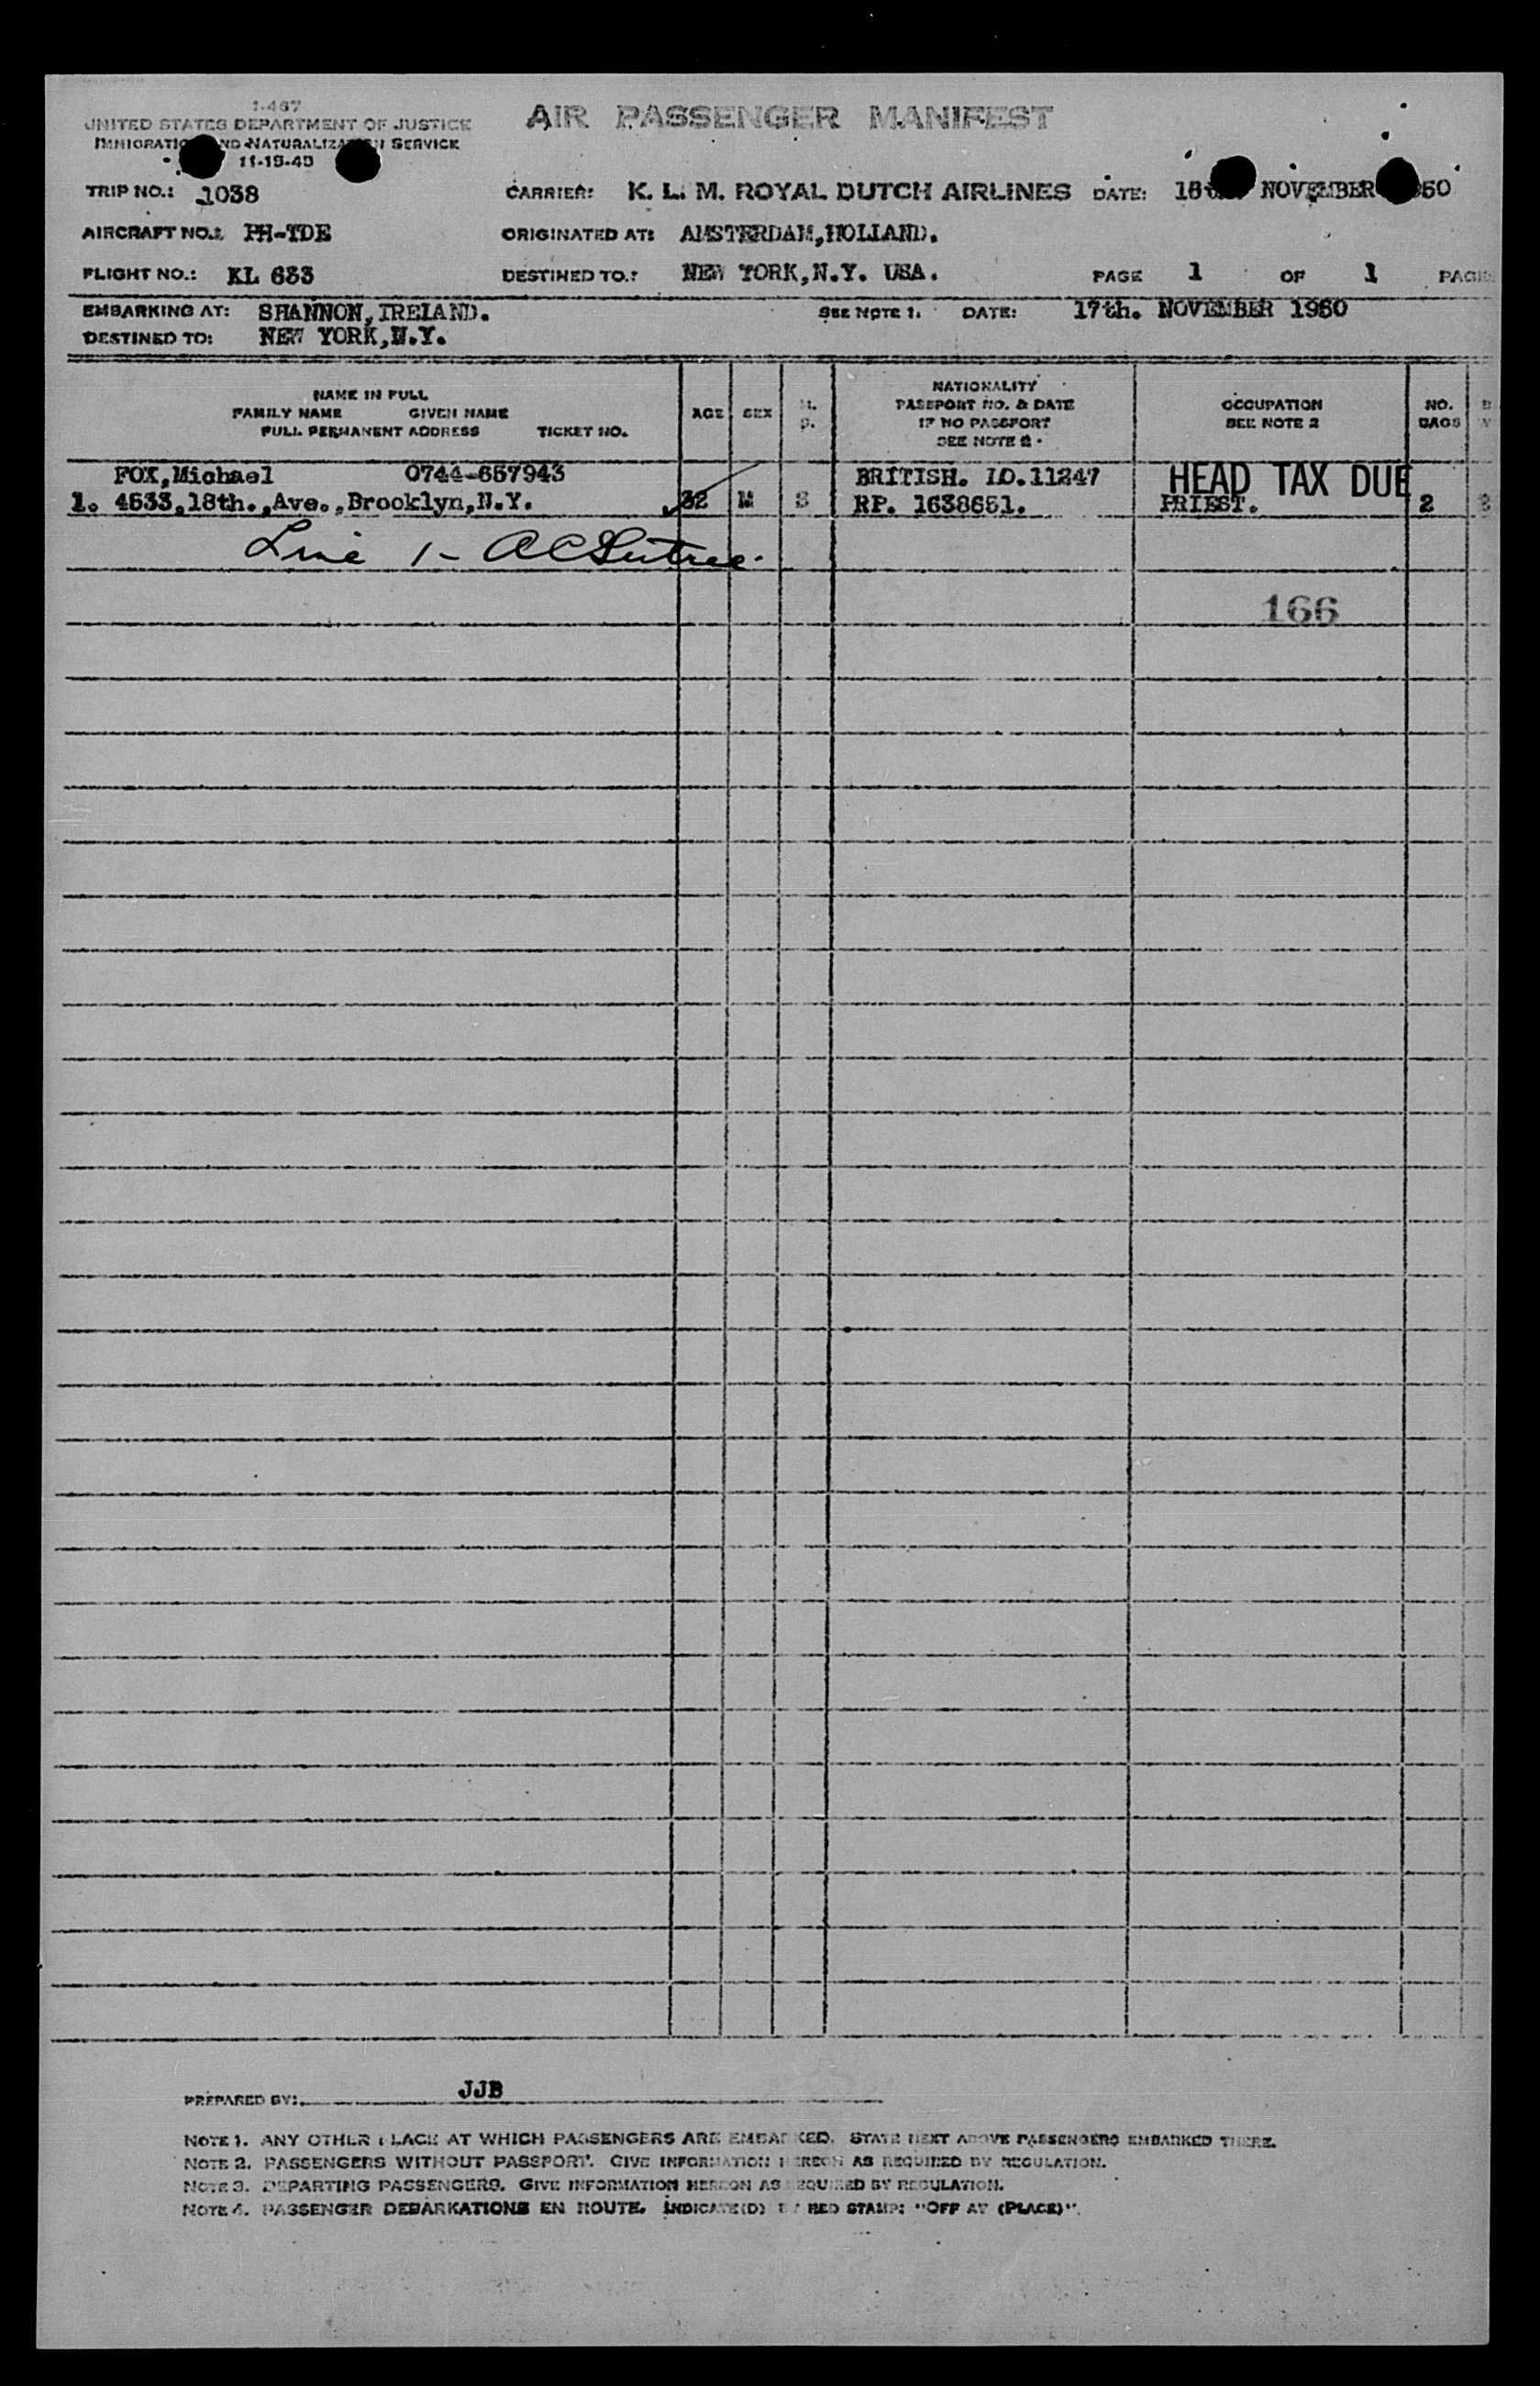 I-467
UNITED STATES DEPARTMENT OF JUSTICE
IMMIGRATION AND NATURALIZATION SERVICE
11-19-49
AIR PASSENGER MANIFEST
TRIP NO.: 1038 CARRIER: K. L. M. ROYAL DUTCH AIRLINES DATE: NOVEMBER
AIRCRAFT NO.: PH-TDE ORIGINATED AT: AMSTERDAM,HOLLAND.
FLIGHT NO.: KL 633 DESTINED TO.: NEW YORK,N.Y. USA. PAGE 1 OF 1
EMBARKING AT: SHANNON,IRELAND. SEE NOTE 1. DATE: 17th. NOVEMBER 1950
DESTINED TO: NEW YORK,N.Y.
NAME IN FULL
FAMILY NAME GIVEN NAME
FULL PERMANENT ADDRESS TICKET NO.
AGE SEX M. S.
NATIONALITY
PASSPORT NO. & DATE
IF NO PASSPORT
SEE NOTE 2.
OCCUPATION
SEE NOTE 2
NO.
BAGS
FOX,Michael 0744-657943 BRITISH. ID.11247 HEAD TAX DUE
1. 4533,18th.,Ave.,Brooklyn,N.Y. 32 M S RP. 1638651. PRIEST. 2
Line 1-
166
PREPARED BY: JJB
NOTE 1. ANY OTHER PLACE AT WHICH PASSENGERS ARE EMBARKED. STATE NEXT ABOVE PASSENGERS EMBARKED THERE.
NOTE 2. PASSENGERS WITHOUT PASSPORT. GIVE INFORMATION HEREON AS REQUIRED BY REGULATION.
NOTE 3. DEPARTING PASSENGERS. GIVE INFORMATION HEREON AS REQUIRED BY REGULATION.
NOTE 4. PASSENGER DEBARKATIONS EN ROUTE. INDICATE(D) BY RED STAMP: "OFF AT (PLACE)".